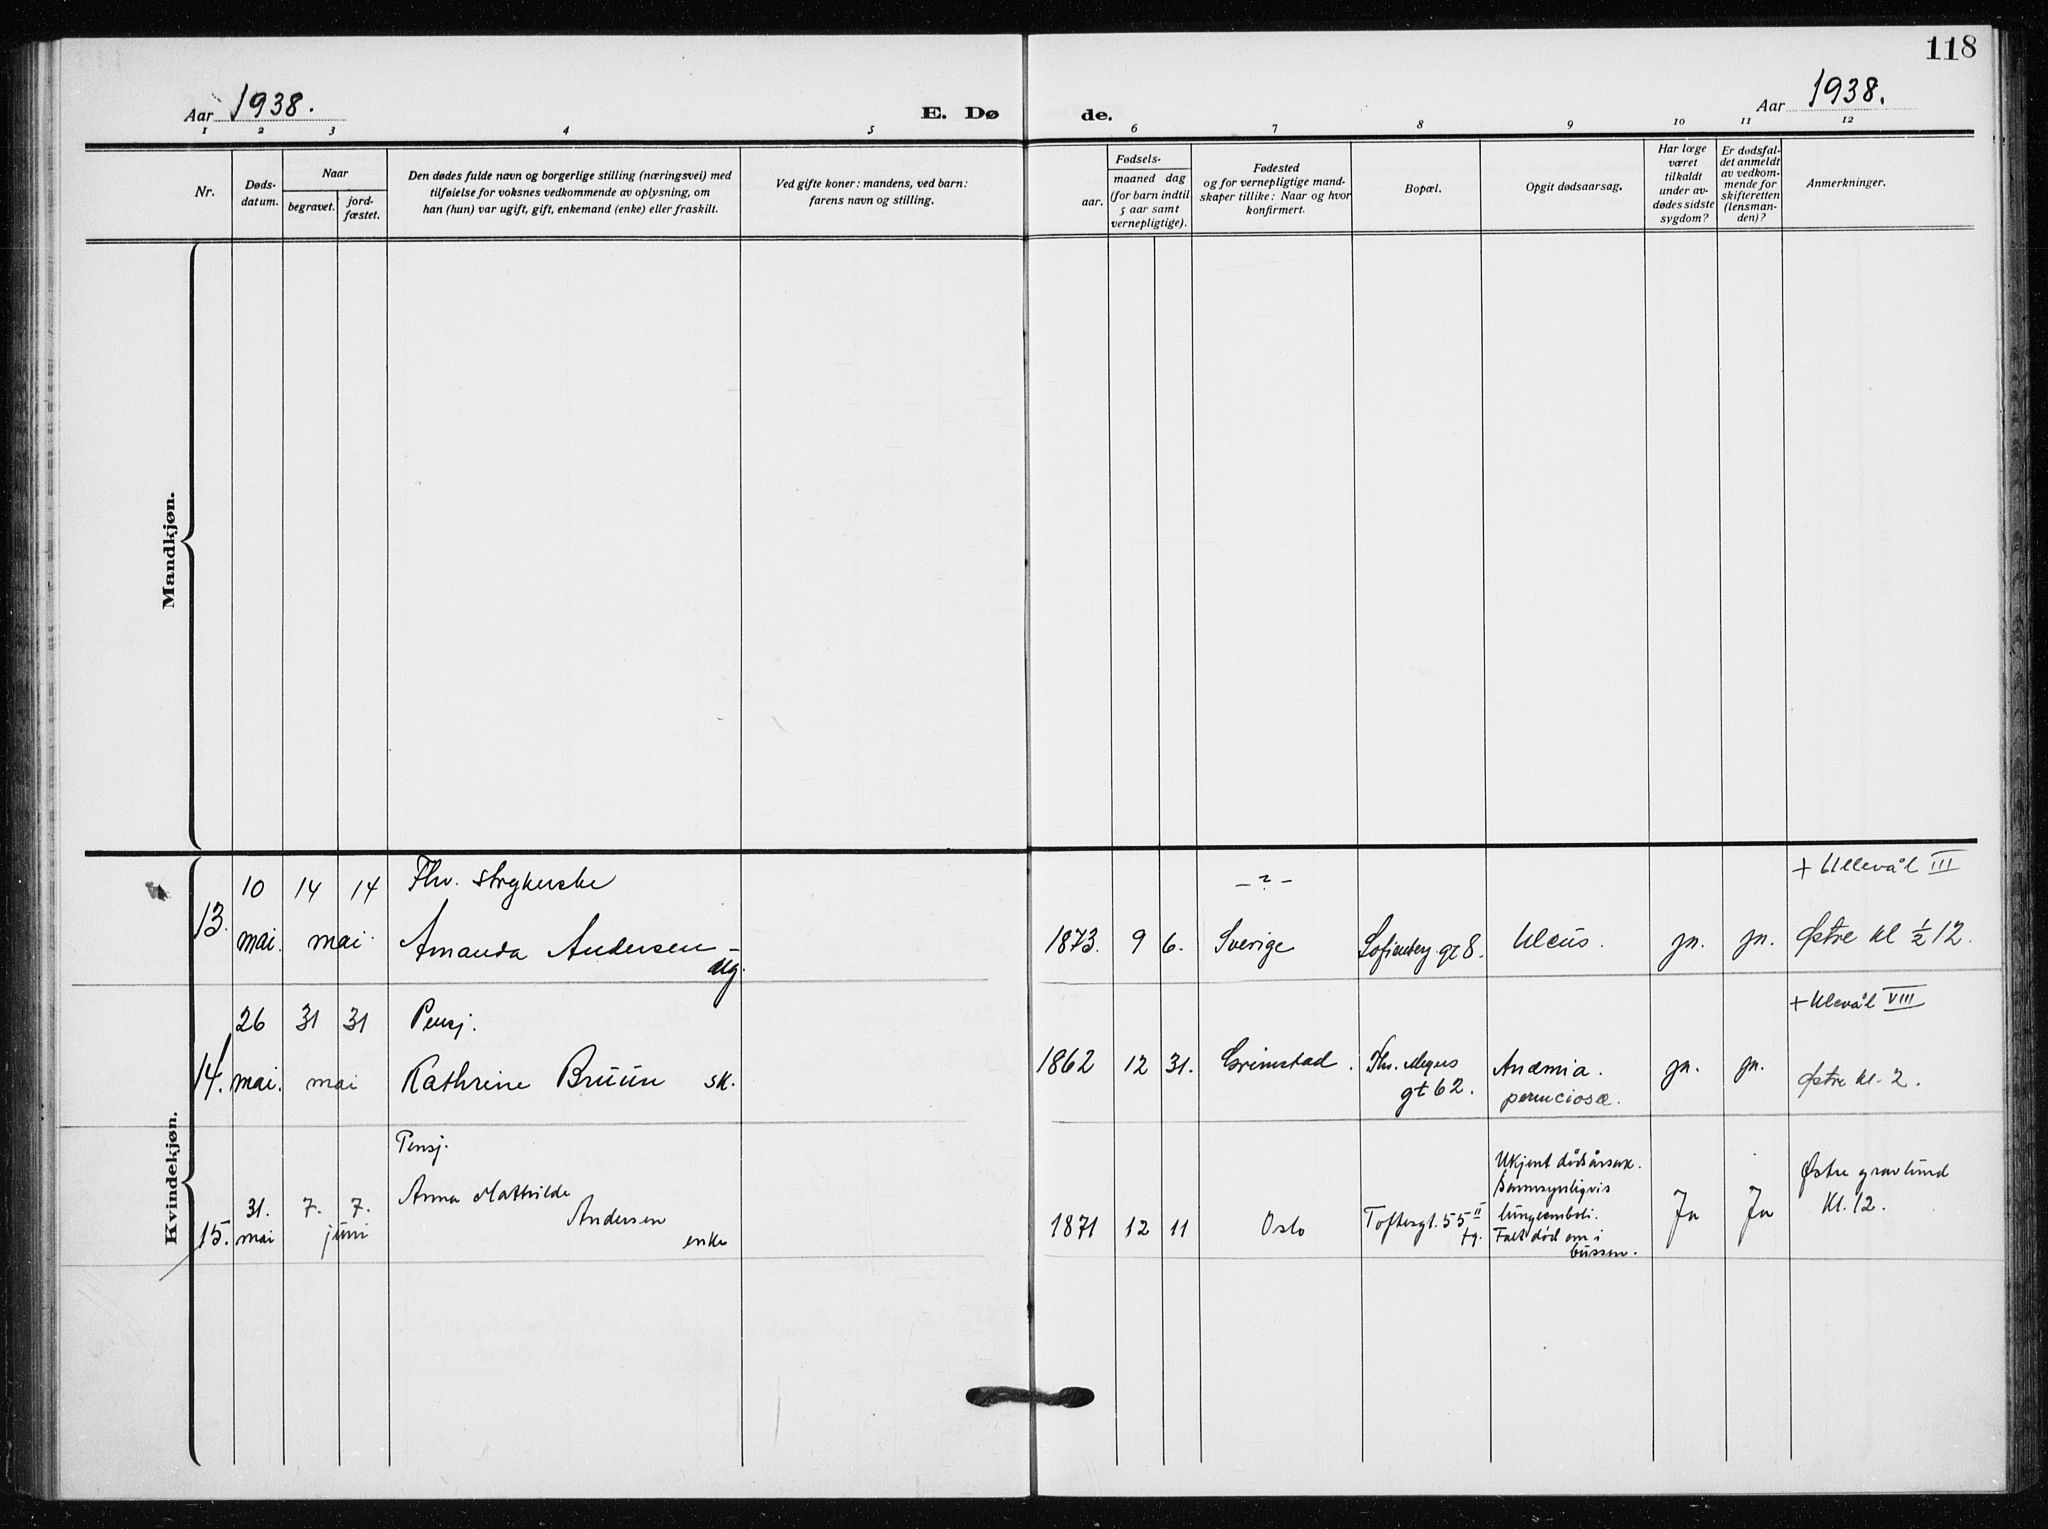 118
Aar 1938.
E. Dø
de.
Aar 1938.
1 2 3 4 5 6 7 8 9 10 11 12
Nr.
Døds-
datum.
Naar
begravet.
jord-
fæstet.
Den dødes fulde navn og borgerlige stilling (næringsvei) med
tilføielse for voksnes vedkommende av oplysning, om
han (hun) var ugift, gift, enkemand (enke) eller fraskilt.
Ved gifte koner: mandens, ved barn:
farens navn og stilling.
Fødsels-
aar.
maaned dag
(for barn indtil
5 aar samt
vernepligtige).
Fødested
og for vernepligtige mand-
skaper tillike: Naar og hvor
konfirmert.
Bopæl.
Opgit dødsaarsag.
Har læge
været
tilkaldt
under av-
dødes sidste
sygdom?
Er dødsfal-
det anmeldt
av vedkom-
mende for
skifteretten
(lensman-
den)?
Anmerkninger.
Mandkjøn.
Kvindekjøn.
13.
10
mai.
14 14
mai
Fhv. strykerske
Amanda Andersen -
ug.
1873. 9 6.
- ? -
Sverige
Sofienberg gt 8.
Ulcus.
ja.
ja.
+ Ullevål III
Østre kl ½ 12.
14.
26
mai.
31 31
mai
Pensj.
Kathrine Bruun sk.
1862 12 31.
Grimstad.
Thv. Meyers
gt 62.
Anæmia.
perniciosæ.
ja.
ja.
+ Ulevål VIII
Østre kl. 2.
15.
31.
mai
7. 7.
juni
Pensj.
Anna Mathilde
Andersen
enke
1871 12 11
Oslo
Toftesgt. 55 II
Ukjent dødsårsak.
Sannsynligvis
lungeemboli.
Falt død om i
bussen.
Ja
Ja
Østre gravlund
kl. 12.